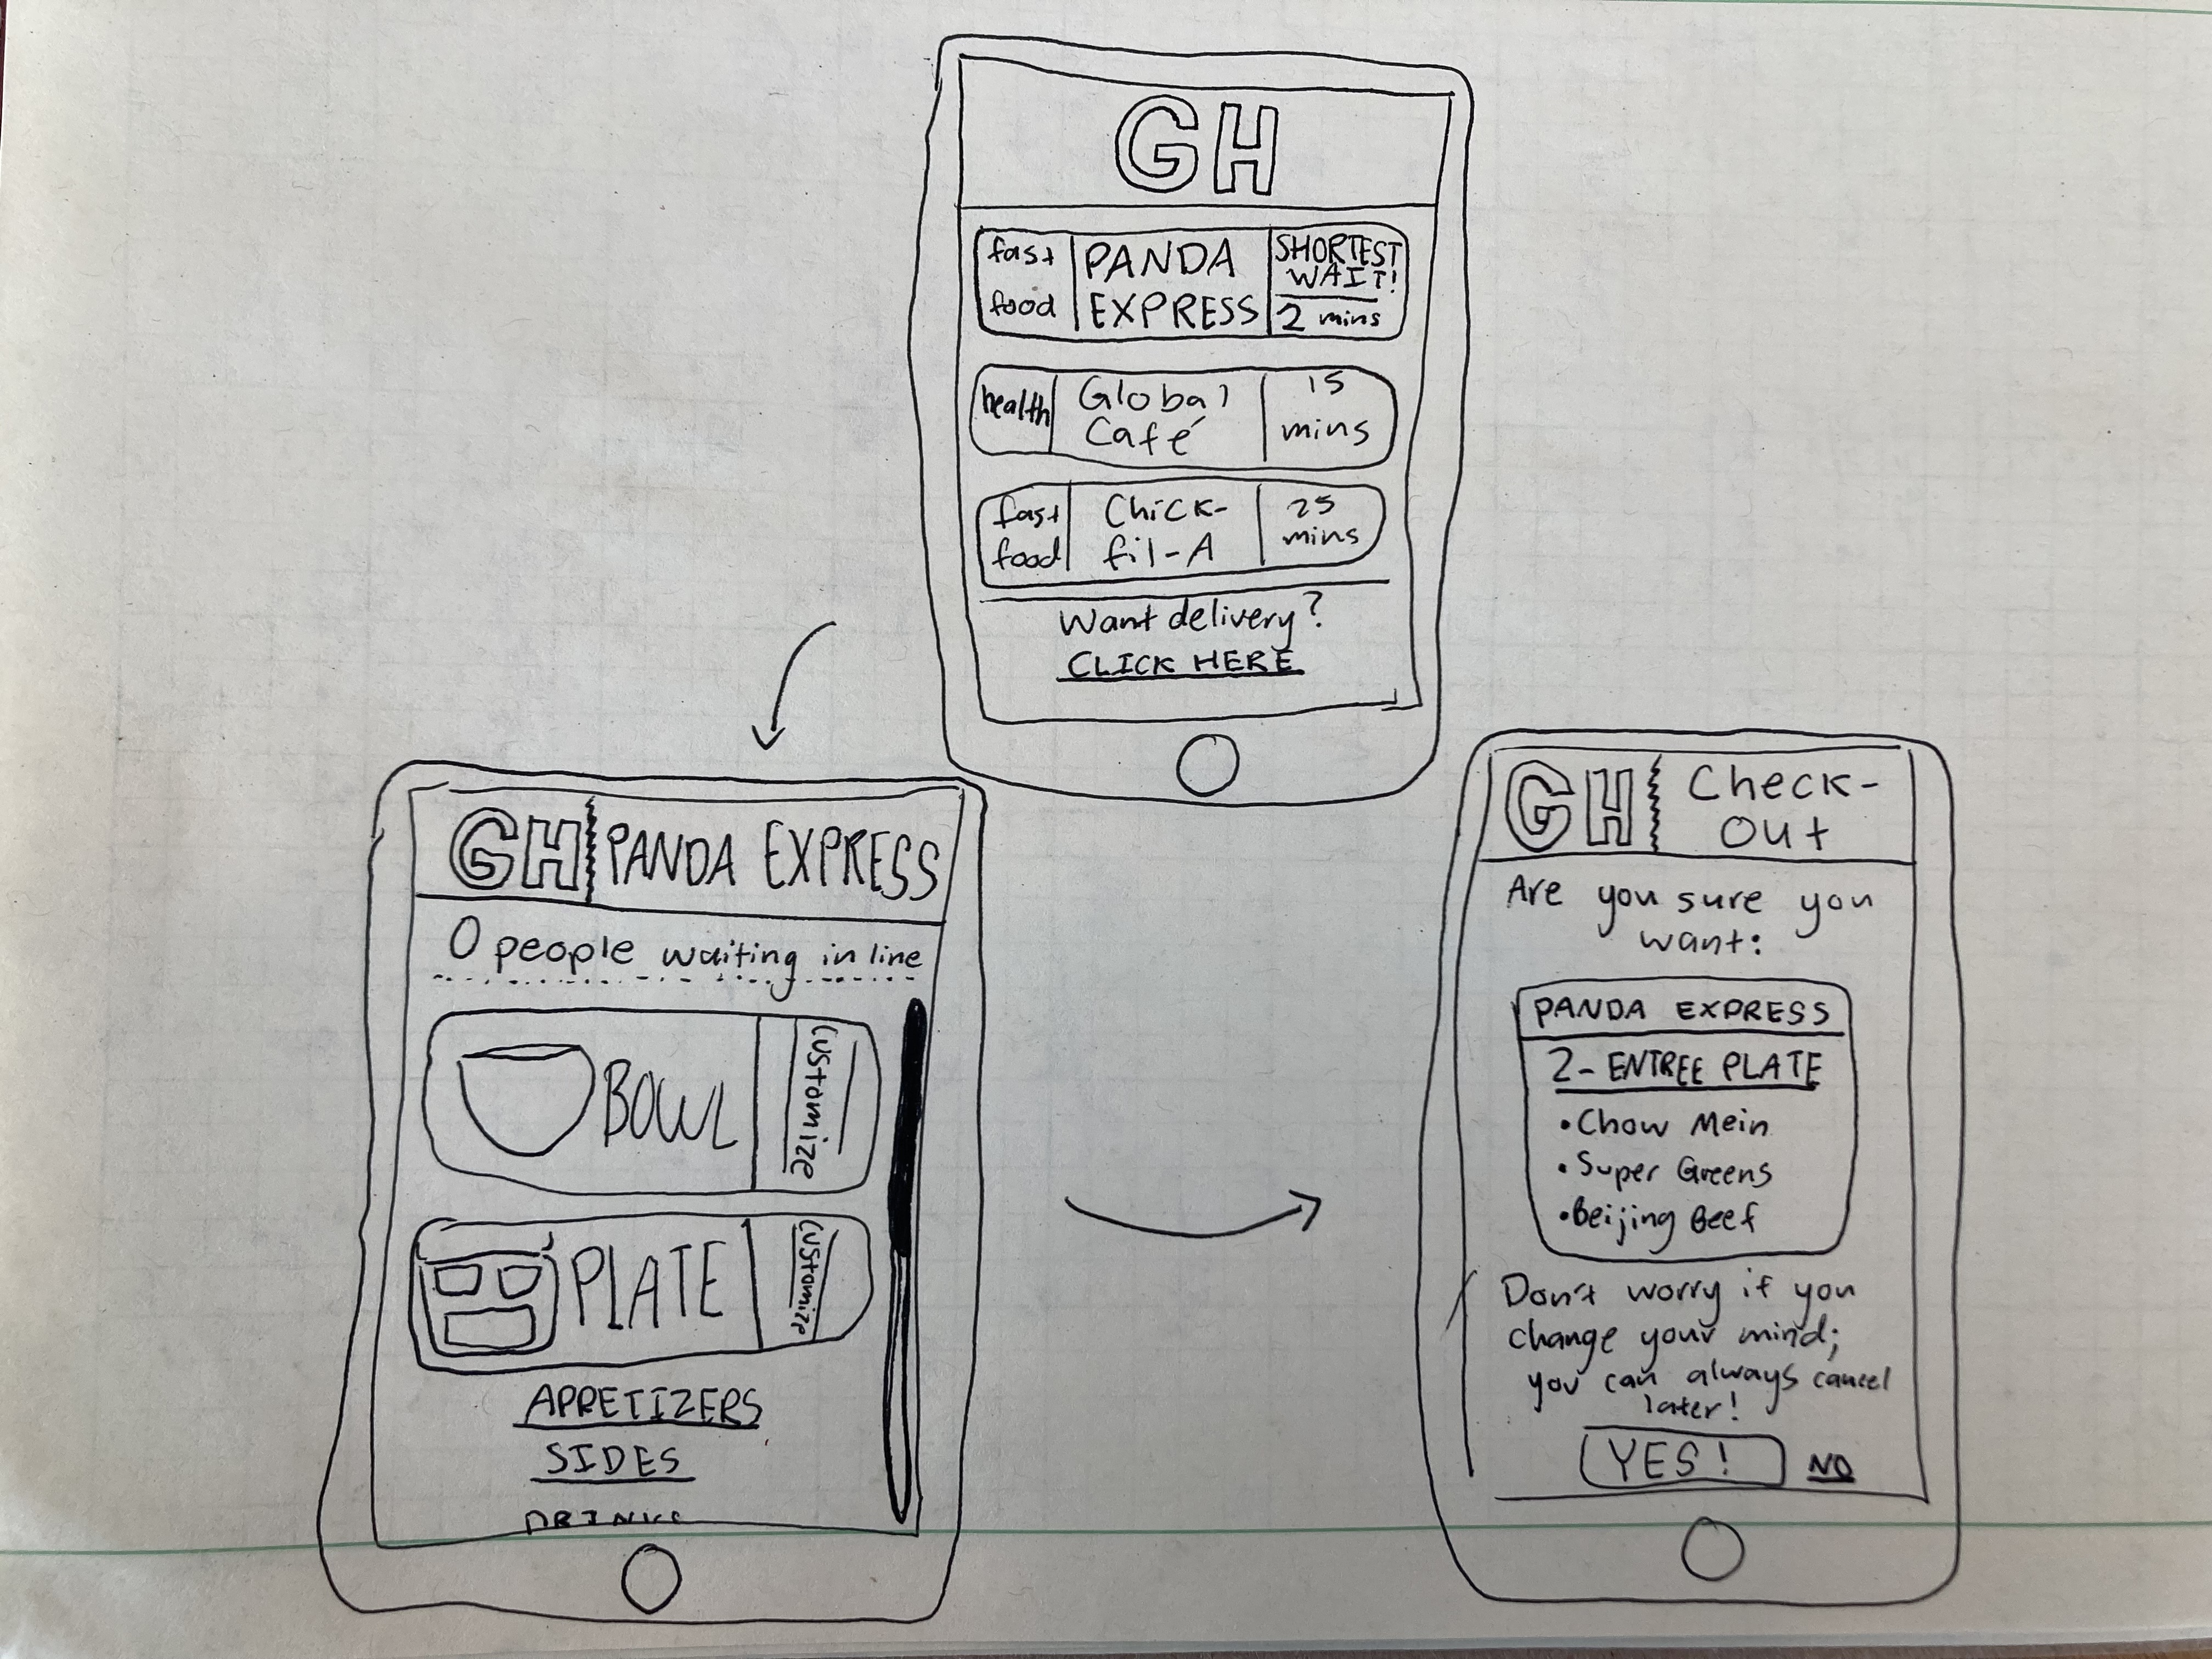 GH
fast food
PANDA EXPRESS
SHORTEST WAIT!
2 mins
health
Global Café
15 mins
fast food
Chick-fil-A
25 mins
Want delivery?
CLICK HERE
GH PANDA EXPRESS
0 people waiting in line
BOWL
Customize
PLATE
Customize
APPETIZERS
SIDES
DRINKS
GH Check-
out
Are you sure you
want:
PANDA EXPRESS
2-ENTREE PLATE
• Chow Mein
• Super Greens
• Beijing Beef
Don't worry if you
change your mind;
you can always cancel
later!
YES! NO